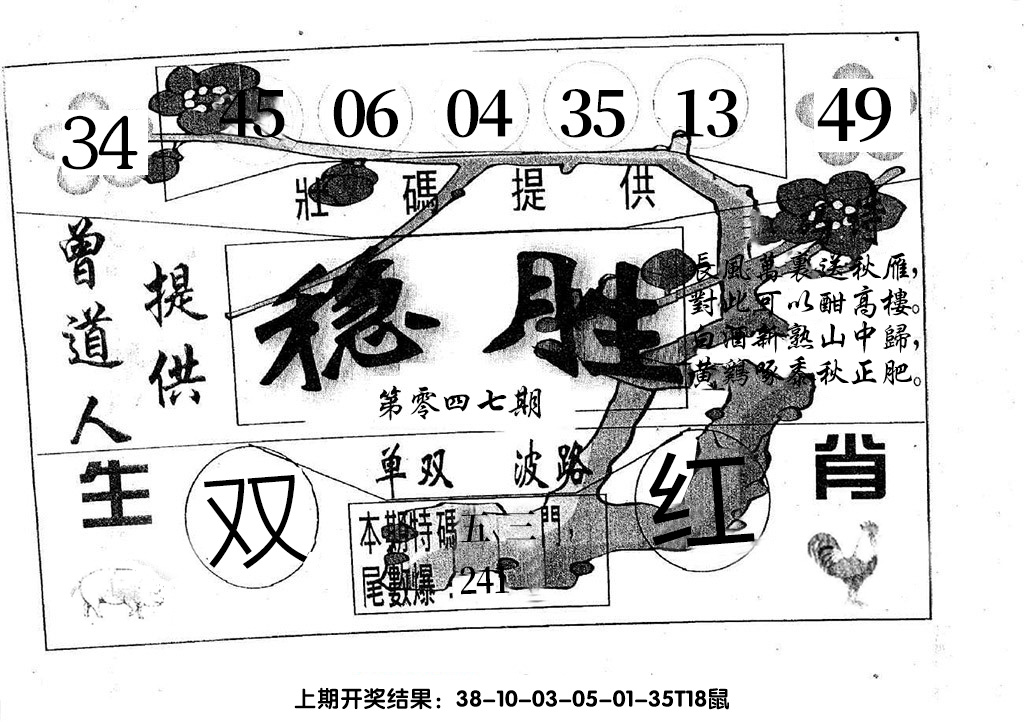 34 45 06 04 35 13 49
壯碼提供
曾道人
提供
稳胜
第零四七期
長風萬裏送秋雁，
對此可以酣高樓。
白酒新熟山中歸，
黃鶏啄黍秋正肥。
生肖
双
单双 波路
红
本期特碼五、三門，
尾數爆：241
上期开奖结果：38-10-03-05-01-35T18鼠